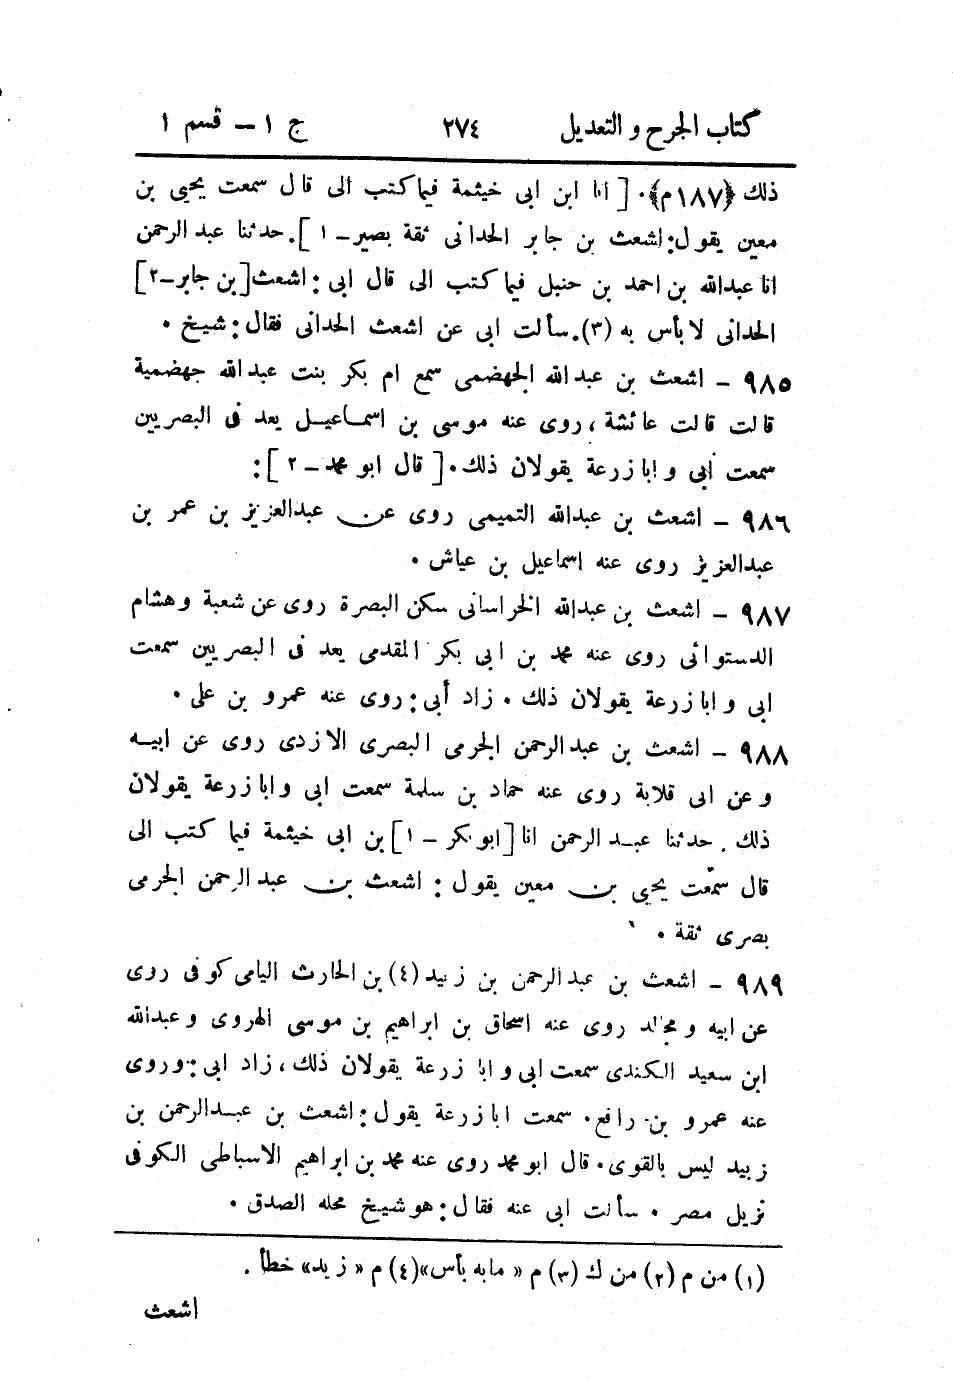 كتاب الجرح و التعديل ٢٧٤ ج ١ – قسم ١
ذلك ﴿١٨٧م﴾. [ انا ابن ابى خيثمة فيما كتب الى قال سمعت يحيى بن
معين يقول: اشعث بن جابر الحدانى ثقة بصير – ١ ]. حدثنا عبد الرحمن
انا عبدالله بن احمد بن حنبل فيما كتب الى قال ابى: اشعث [بن جابر – ٢]
الحدانى لا بأس به (٣). سألت ابى عن اشعث الحدانى فقال: شيخ .
٩٨٥ – اشعث بن عبد الله الجهضمى سمع ام بكر بنت عبد الله جهضمية
قالت قالت عائشة، روى عنه موسى بن اسماعيل يعد فى البصريين
سمعت أبى و ابا زرعة يقولان ذلك. [ قال ابو محمد – ٢ ]:
٩٨٦ – اشعث بن عبدالله التميمى روى عن عبدالعزيز بن عمر بن
عبدالعزيز روى عنه اسماعيل بن عياش .
٩٨٧ – اشعث بن عبدالله الخراسانى سكن البصرة روى عن شعبة و هشام
الدستوائى روى عنه محمد بن ابى بكر المقدمى يعد فى البصريين سمعت
ابى و ابا زرعة يقولان ذلك . زاد أبى: روى عنه عمرو بن على .
٩٨٨ – اشعث بن عبد الرحمن الجرمى البصرى الازدى روى عن ابيه
و عن ابى قلابة روى عنه حماد بن سلمة سمعت ابى و ابا زرعة يقولان
ذلك . حدثنا عبد الرحمن انا [ابو بكر – ١] بن ابى خيثمة فيما كتب الى
قال سمعت يحيى بن معين يقول : اشعث بن عبد الرحمن الجرمى
بصرى ثقة .
٩٨٩ – اشعث بن عبدالرحمن بن زبيد (٤) بن الحارث اليامى كوفى روى
عن ابيه و مجالد روى عنه اسحاق بن ابراهيم بن موسى الهروى و عبدالله
ابن سعيد الكندى سمعت ابى و ابا زرعة يقولان ذلك، زاد ابى: وروى
عنه عمرو بن رافع. سمعت ابا زرعة يقول: اشعث بن عبدالرحمن بن
زبيد ليس بالقوى. قال ابو محمد روى عنه محمد بن ابراهيم الاسباطى الكوفى
نزيل مصر . سألت ابى عنه فقال: هو شيخ محله الصدق .
(١) من م (٢) من ك (٣) م « مابه بأس» (٤) م « زيد» خطأ .
اشعث